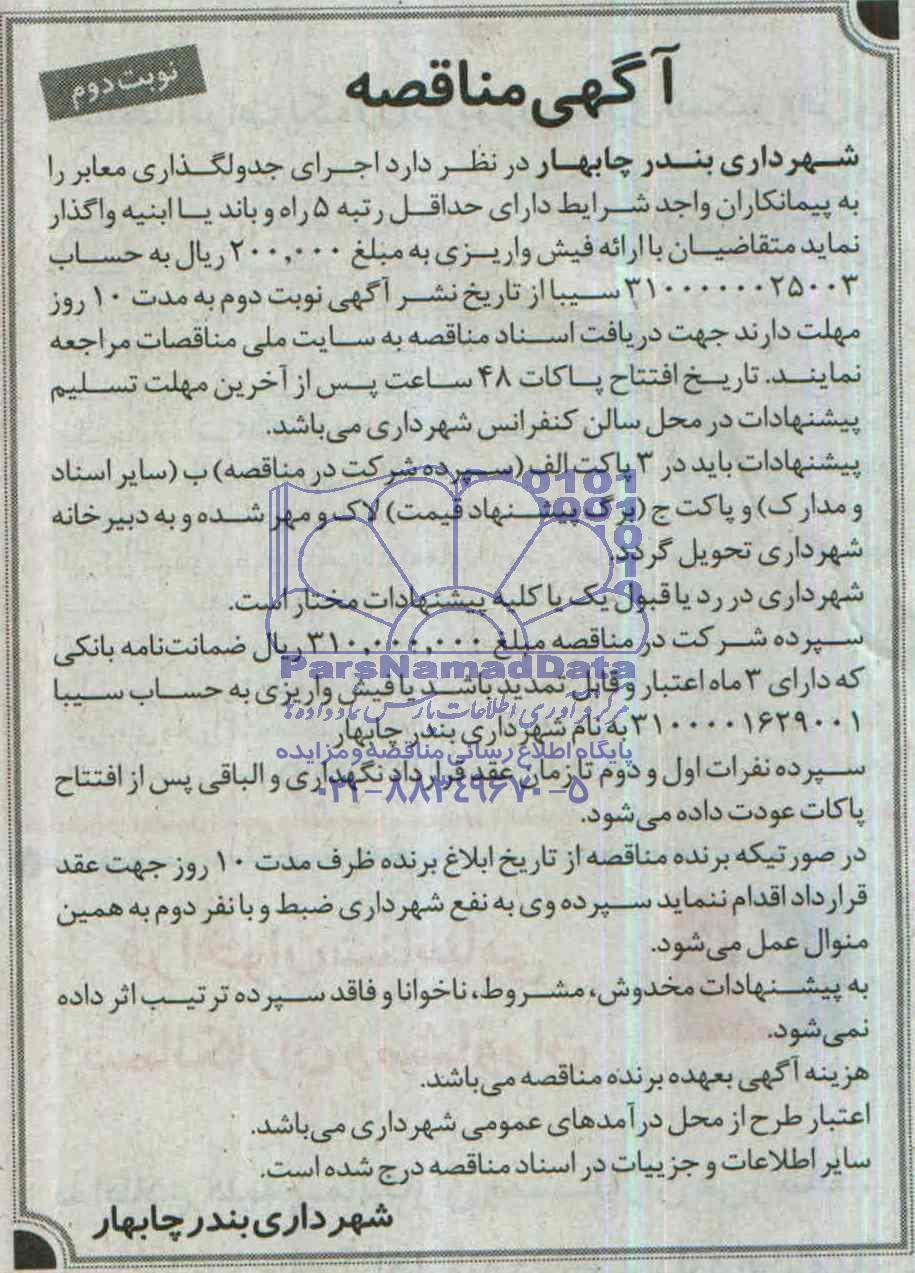 آگهی مناقصه
نوبت دوم
شهرداری بندر چابهار در نظر دارد اجرای جدولگذاری معابر را
به پیمانکاران واجد شرایط دارای حداقل رتبه ۵ راه و باند یا ابنیه واگذار
نماید متقاضیان با ارائه فیش واریزی به مبلغ ۲۰۰,۰۰۰ ریال به حساب
۳۱۰۰۰۰۰۰۲۵۰۰۳ سیبا از تاریخ نشر آگهی نوبت دوم به مدت ۱۰ روز
مهلت دارند جهت دریافت اسناد مناقصه به سایت ملی مناقصات مراجعه
نمایند. تاریخ افتتاح پاکات ۴۸ ساعت پس از آخرین مهلت تسلیم
پیشنهادات در محل سالن کنفرانس شهرداری می‌باشد.
پیشنهادات باید در ۳ پاکت الف (سپرده شرکت در مناقصه) ب (سایر اسناد
و مدارک) و پاکت ج (برگ پیشنهاد قیمت) لاک و مهر شده و به دبیرخانه
شهرداری تحویل گردد.
شهرداری در رد یا قبول یک یا کلیه پیشنهادات مختار است.
سپرده شرکت در مناقصه مبلغ ۳۱۰,۰۰۰,۰۰۰ ریال ضمانت‌نامه بانکی
ParsNamadData
که دارای ۳ ماه اعتبار و قابل تمدید باشد یا فیش واریزی به حساب سیبا
مرکز فرآوری اطلاعات پارس نماد داده‌ها
۳۱۰۰۰۰۱۶۲۹۰۰۱ به نام شهرداری بندر چابهار
پایگاه اطلاع رسانی مناقصه و مزایده
سپرده نفرات اول و دوم تا زمان عقد قرارداد نگهداری و الباقی پس از افتتاح
۰۲۱-۸۸۳۴۹۶۷۰-۵
پاکات عودت داده می‌شود.
در صورتیکه برنده مناقصه از تاریخ ابلاغ برنده ظرف مدت ۱۰ روز جهت عقد
قرارداد اقدام ننماید سپرده وی به نفع شهرداری ضبط و با نفر دوم به همین
منوال عمل می‌شود.
به پیشنهادات مخدوش، مشروط، ناخوانا و فاقد سپرده ترتیب اثر داده
نمی‌شود.
هزینه آگهی بعهده برنده مناقصه می‌باشد.
اعتبار طرح از محل درآمدهای عمومی شهرداری می‌باشد.
سایر اطلاعات و جزییات در اسناد مناقصه درج شده است.
شهرداری بندر چابهار